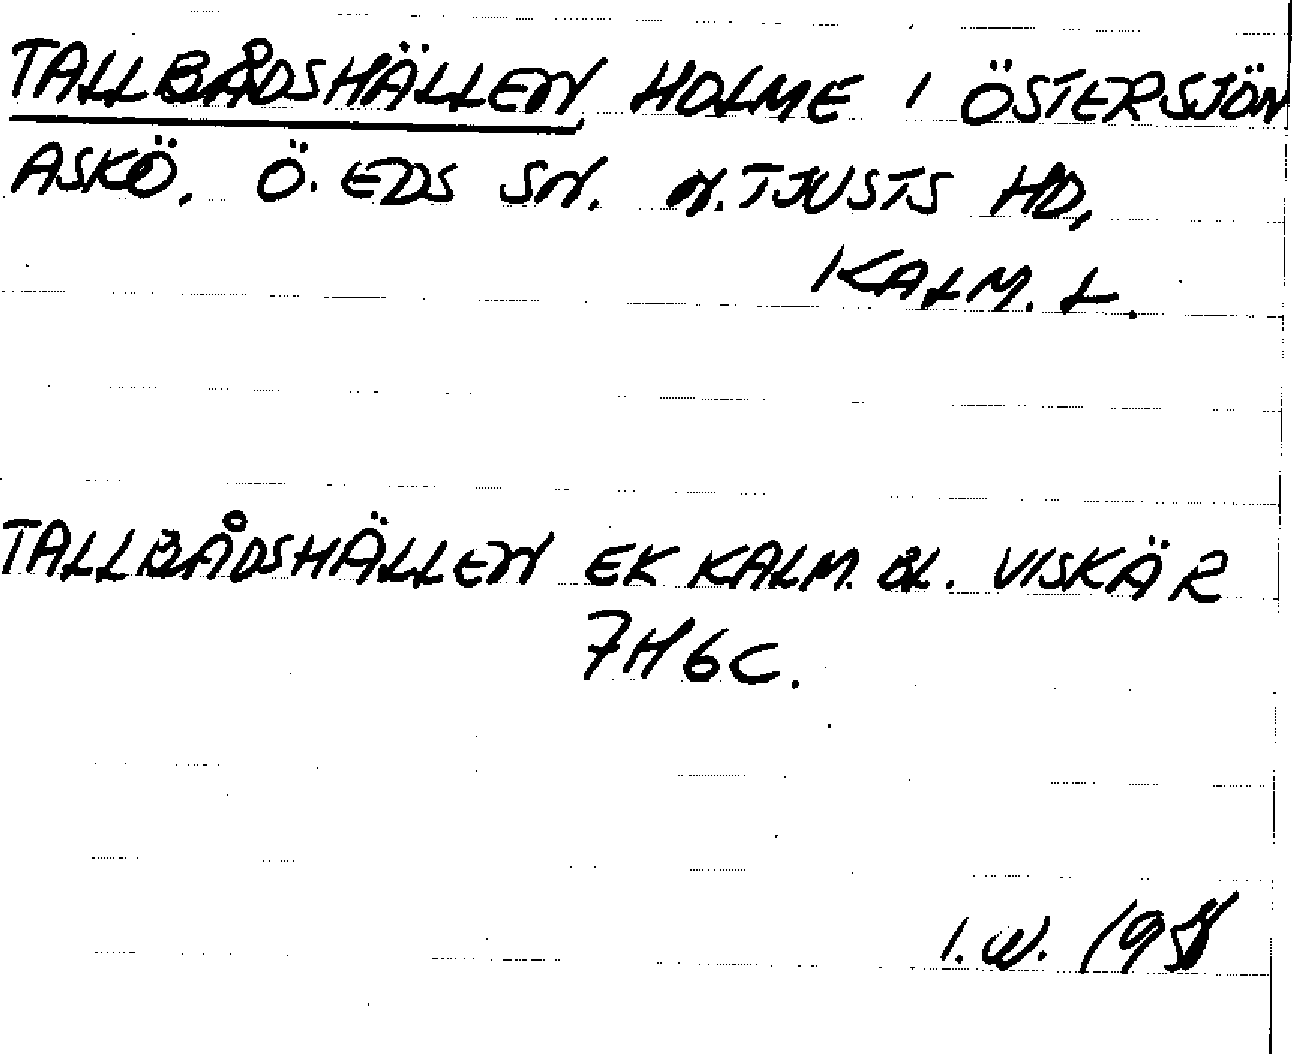 TALLBÅDSHÄLLEN HOLME I ÖSTERSJÖN
ASKÖ, Ö. EDS SN. N. TJUSTS HD,
KALM. L.
TALLBÅDSHÄLLEN EK KALM. BL. VISKÄR
7H6C.
I. W.